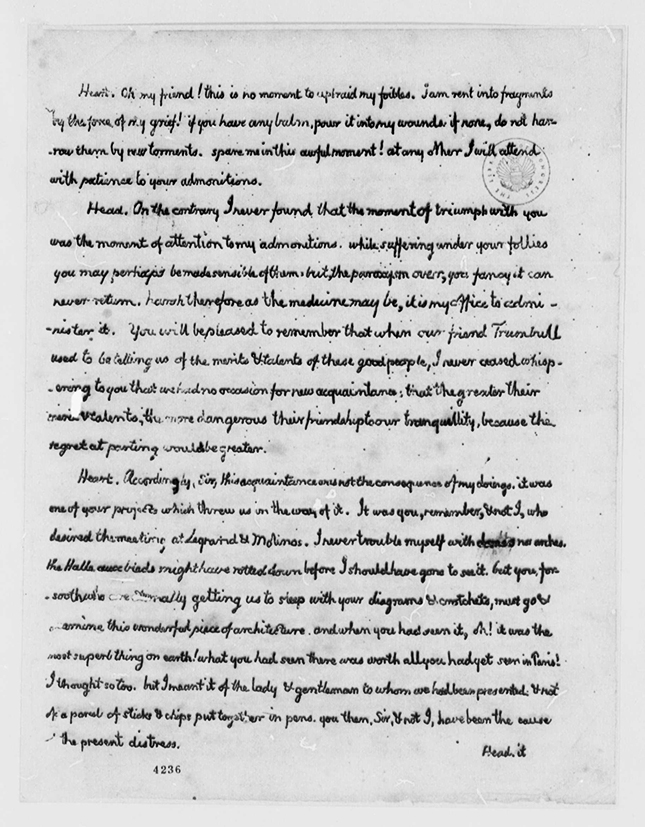 Heart. Oh my friend! this is no moment to upbraid my foibles. I am rent into fragments
by the force of my grief! if you have any balm, pour it into my wounds: if none, do not har-
-row them by new torments. spare me in this awful moment! at any other I will attend
with patience to your admonitions.
Head. On the contrary I never found that the moment of triumph with you
was the moment of attention to my admonitions. while suffering under your follies
you may perhaps be made sensible of them, but, the paroxysm over, you fancy it can
never return. harsh therefore as the medicine may be, it is my office to admi-
-nister it. You will be pleased to remember that when our friend Trumbull
used to be telling us of the merits & talents of these good people, I never ceased whisp-
-ering to you that we had no occasion for new acquaintance; that the greater their
merit & talents, the more dangerous their friendship to our tranquillity, because the
regret at parting would be greater.
Heart. Accordingly, Sir, this acquaintance was not the consequence of my doings. it was
one of your projects which threw us in the way of it. It was you, remember, & not I, who
desired the meeting, at Legrand & Molinos. I never trouble myself with domes nor arches.
the Halle aux bleds might have rotted down before I should have gone to see it. but you, for-
-sooth, who are eternally getting us to sleep with your diagrams & crotchets, must go &
examine this wonderful piece of architecture. and when you had seen it, oh! it was the
most superb thing on earth! what you had seen there was worth all you had yet seen in Paris!
I thought so too. but I meant it of the lady & gentleman to whom we had been presented, & not
of a parcel of sticks & chips put together in pens. you then, Sir, & not I, have been the cause
of the present distress.
Head. it
4236